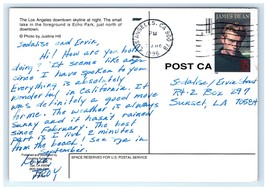 The Los Angeles downtown skyline at night. The small
lake in the foreground is Echo Park, just north of
downtown.
© Photo by Justine Hill
Sodalise and Ervin,
Hi! How are you both
doing? It seems like ages
since I have spoken to you
Everything is absolutely
wonderful in California. It
was definitely a good move
for me. The weather is always
Sunny and it hasn't rained
since February. The best
Part is I live 2 minutes
from the beach! see you in
September.
Love,
JAMES DEAN
POST CA
Sodalise/Ervin
Rt-2 Box 297
Sunset, LA 70584
SPACE RESERVED FOR U.S. POSTAL SERVICE